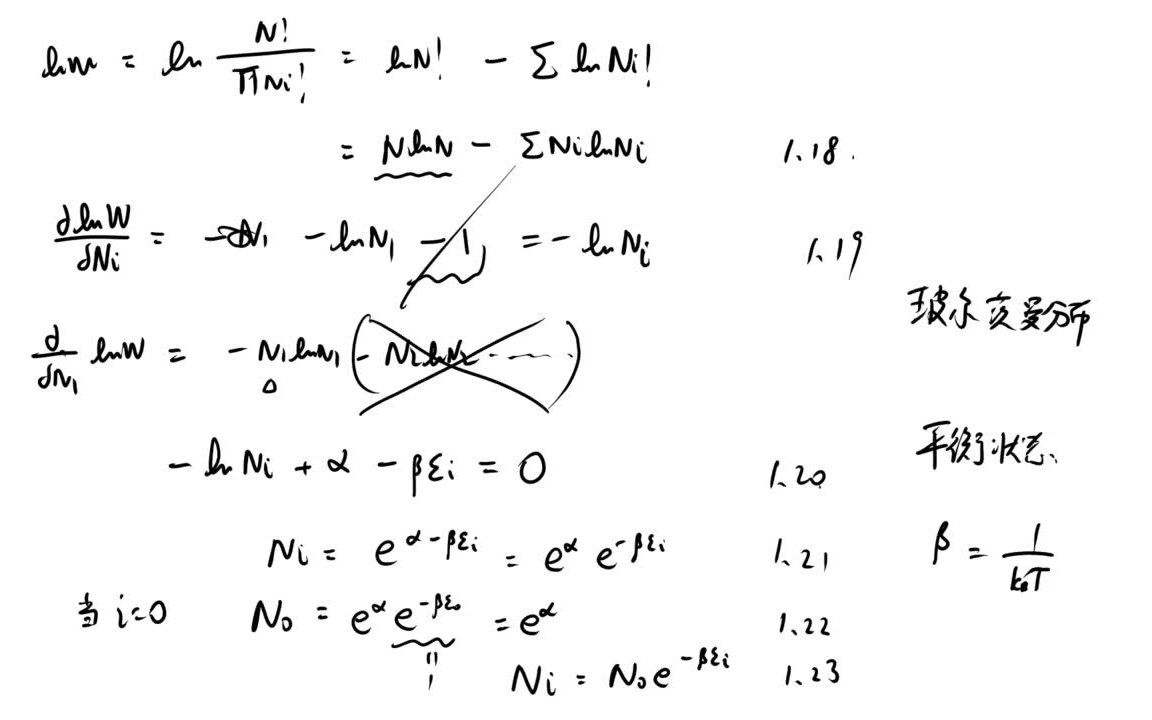 ln w = ln N! / ΠNi! = ln N! - Σ ln Ni!
= N ln N - Σ Ni ln Ni 1.18.
∂lnW/∂Ni = - ln N₁ - 1 = - ln Ni 1.19
玻尔兹曼分布
∂/∂N₁ ln W = - N₁ ln N₁ (- N₂ ln N₂ ------)
平衡状态、
- ln Ni + α - βεi = 0 1.20
Ni = e^(α-βεi) = e^α e^(-βεi) 1.21 β = 1/k₀T
当 i=0 N₀ = e^α e^(-βε₀) = e^α 1.22
1
Ni = N₀e^(-βεi) 1.23